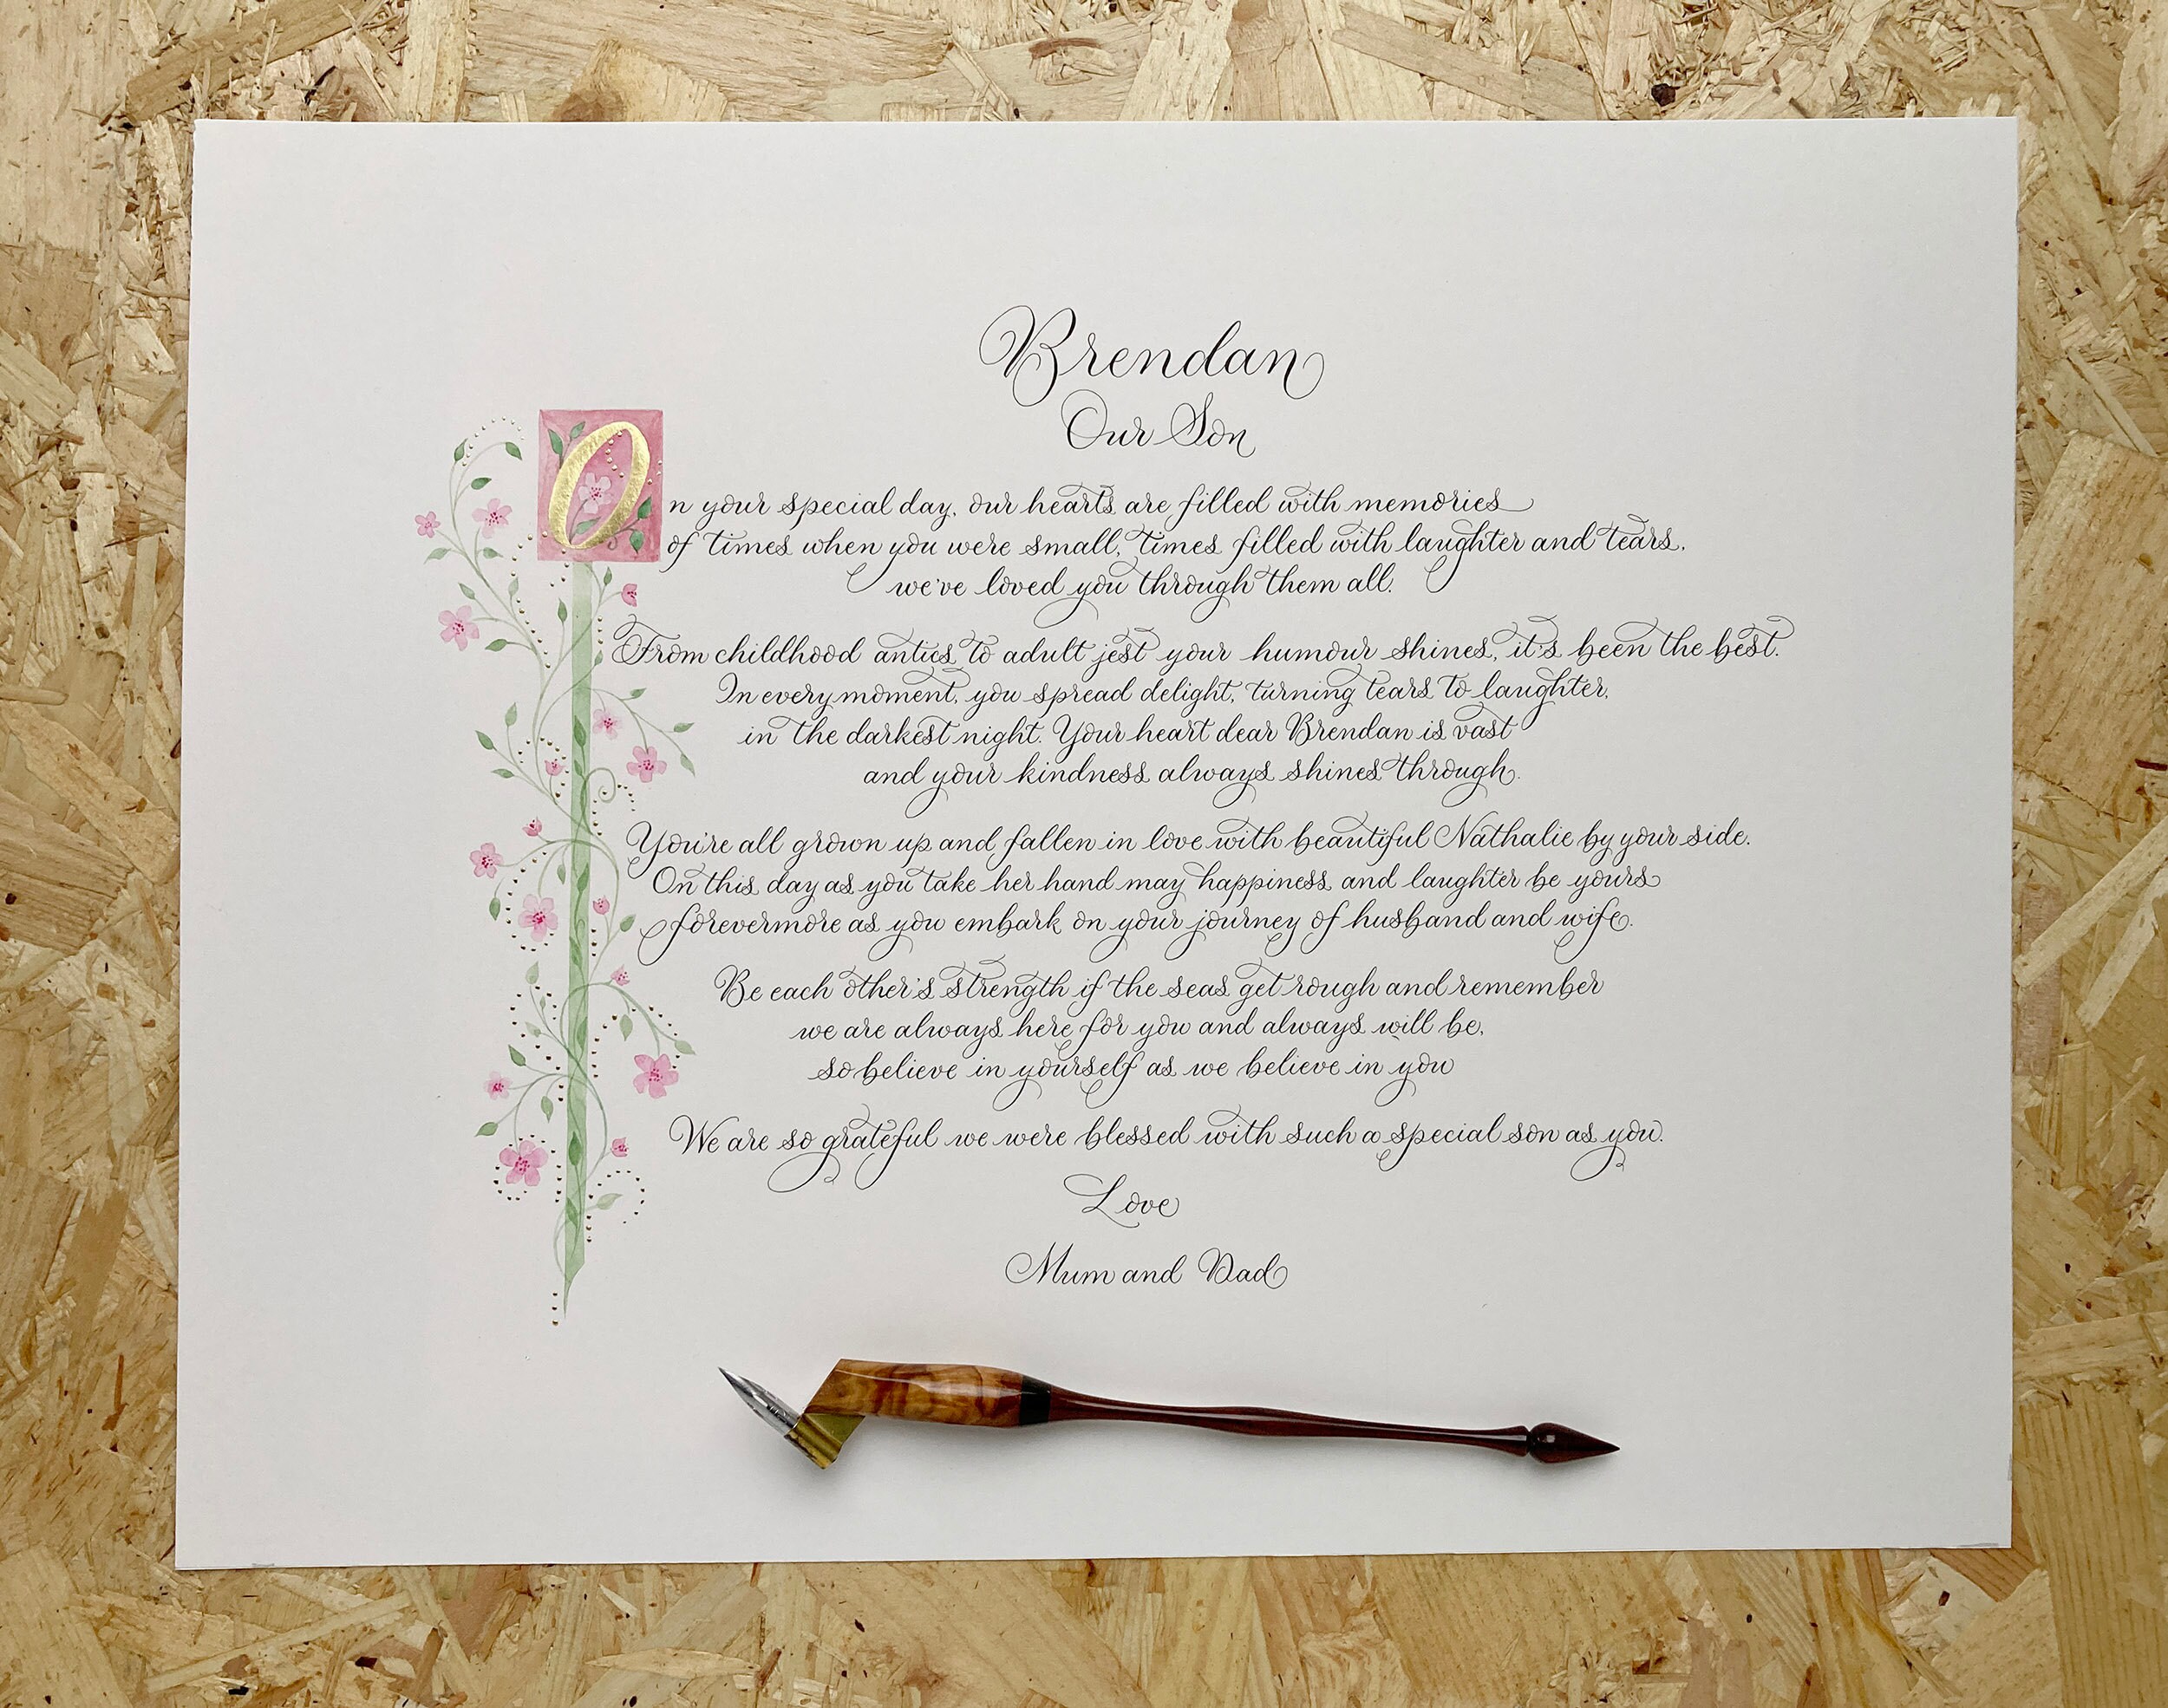 Brendan
Our Son
On your special day, our hearts are filled with memories
of times when you were small, times filled with laughter and tears,
we've loved you through them all.
From childhood antics to adult jest your humour shines, it's been the best.
In every moment, you spread delight, turning tears to laughter,
in the darkest night. Your heart dear Brendan is vast
and your kindness always shines through.
You're all grown up and fallen in love with beautiful Nathalie by your side.
On this day as you take her hand may happiness and laughter be yours
forevermore as you embark on your journey of husband and wife.
Be each other's strength if the seas get rough and remember
we are always here for you and always will be,
so believe in yourself as we believe in you
We are so grateful we were blessed with such a special son as you.
Love
Mum and Dad